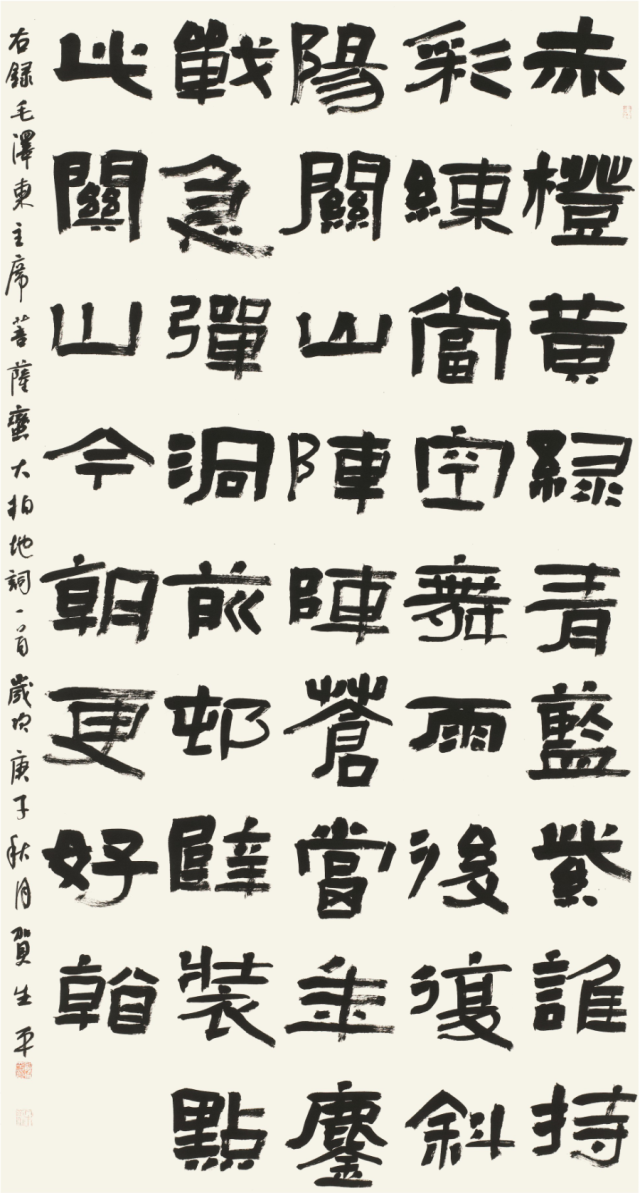 赤橙黄綠青藍紫誰持
彩練當空舞雨後復斜
陽關山陣陣蒼當年鏖
戰急彈洞前邨壁裝點
此關山今朝更好看
右錄毛澤東主席菩薩蠻大柏地詞一首歲次庚子秋月賀生平